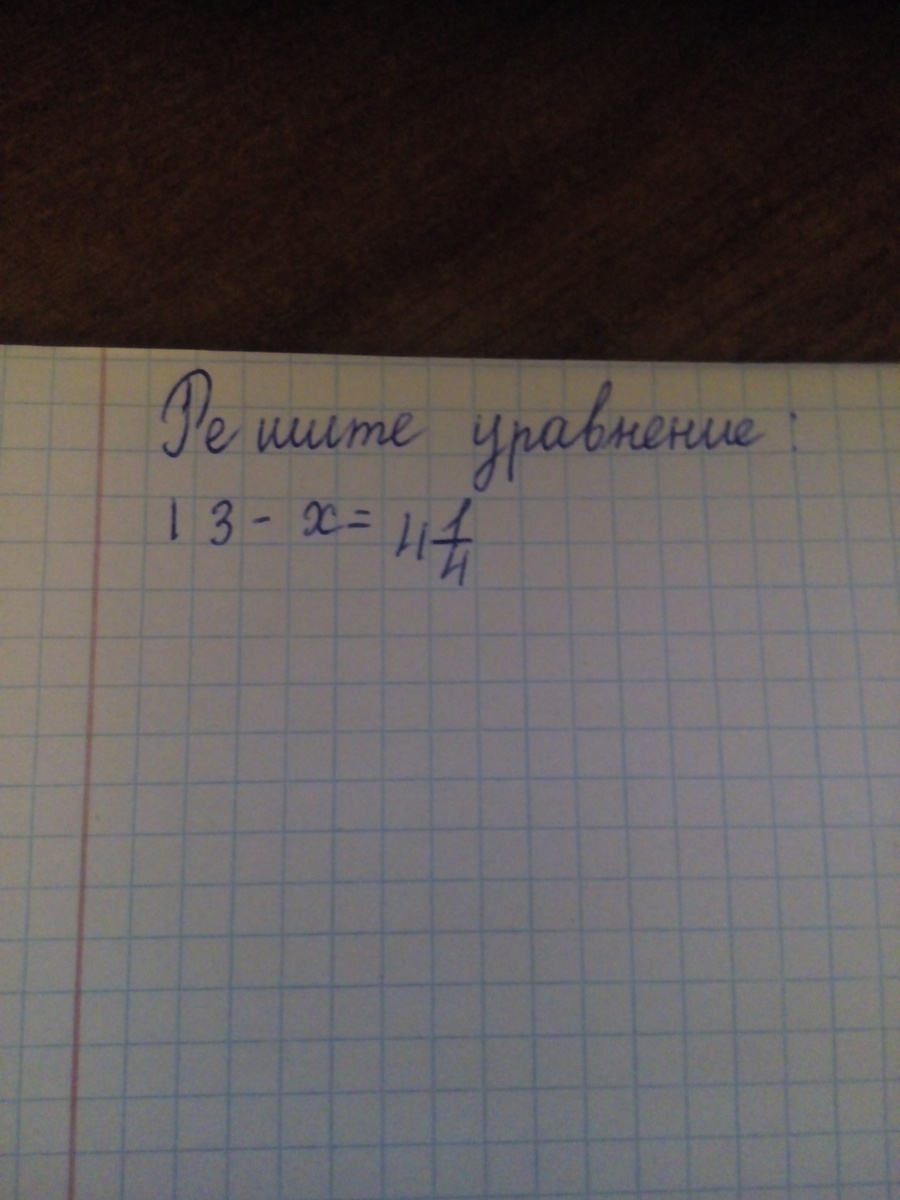 Решите уравнение:
13 - x = 4 1/4